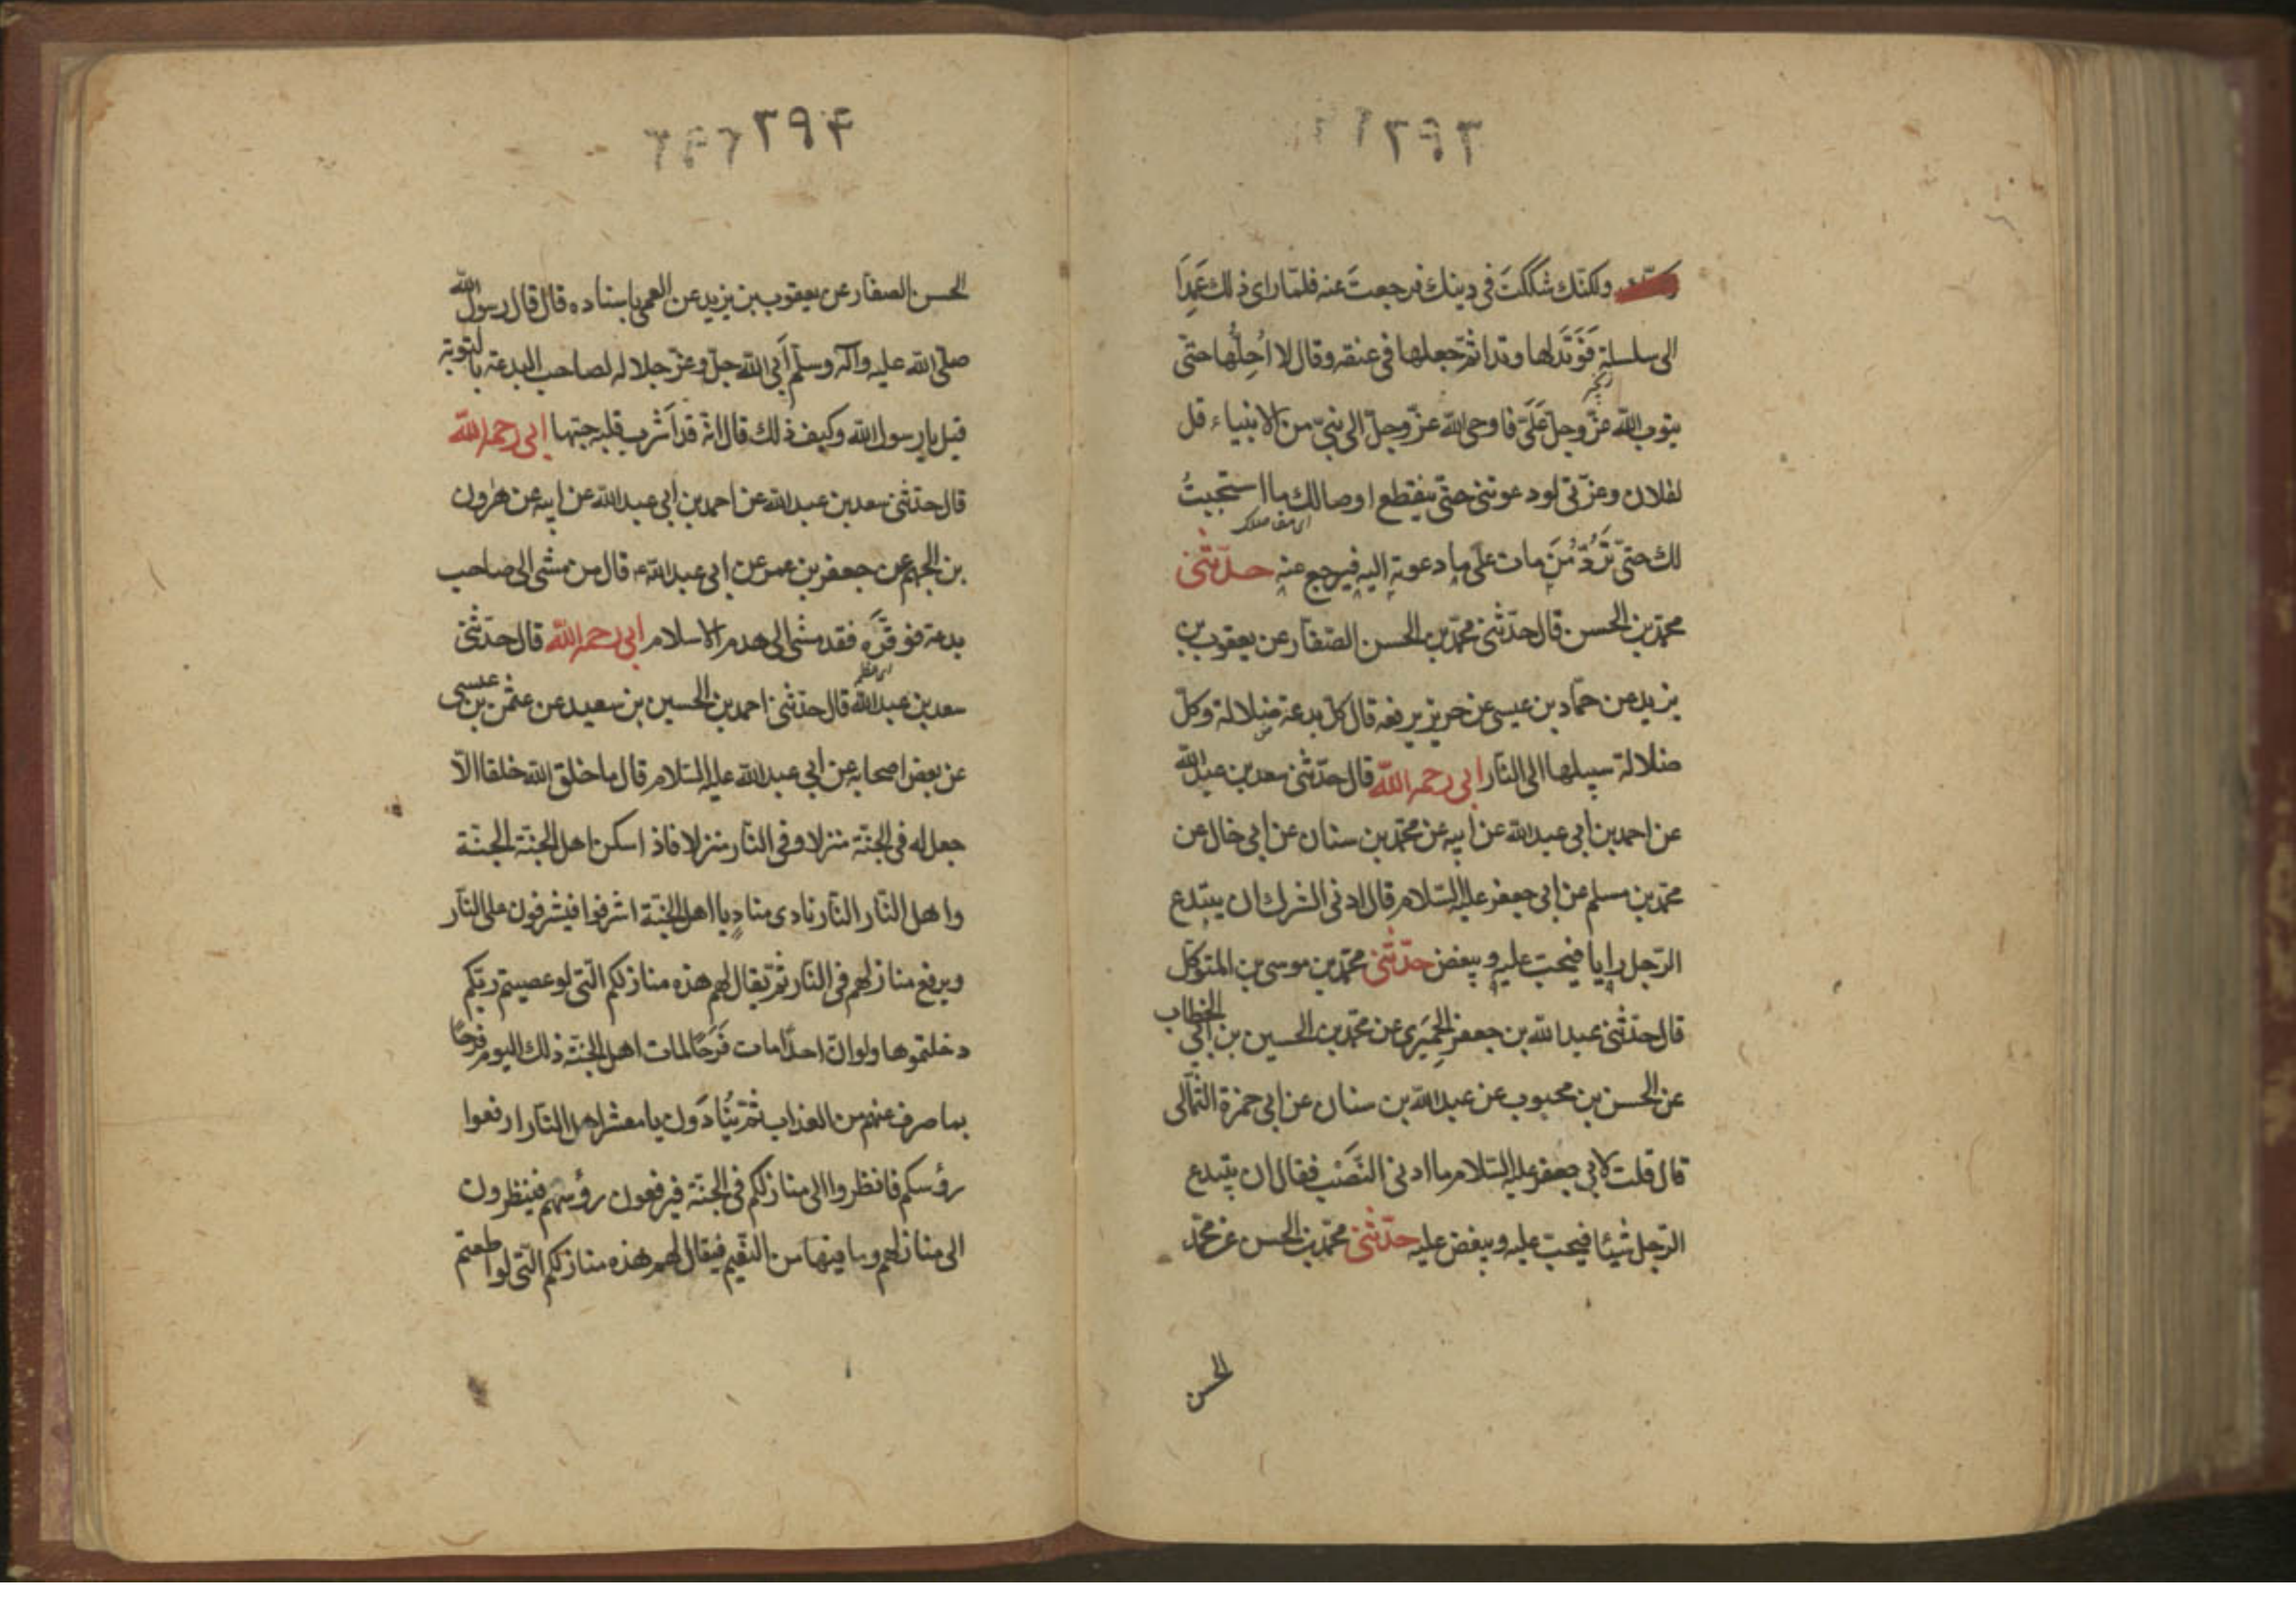 ٣٩٣
ولكنّك شككتَ في دينك فرجعتَ عنه فلمّا رای ذلك عَمِدَ
الی سلسلة فَوَتَدَلها وتدا ثمّ جعلها فی عنقه وقال لا اُحِلّها حتّی
يتوب الله عزّ وجلّ عَلَیّ فاوحی الله عزّ وجلّ الی نبیّ من الانبياء قل
لفلان وعزّتی لو دعوتنی حتّی ينقطع اوصالك ما استجبتُ
ای مفاصلك
لك حتّی تَرُدَّ مَنَ مات علی ما دعوته اليه فيرجع عنه حدّثنی
محمّد بن الحسن قال حدّثنی محمّد بن الحسن الصّفّار عن يعقوب بن
يزيد عن حمّاد بن عيسی عن حريز يرفعه قال كلّ بدعة ضلالة وكلّ
ضلالة سبيلها الی النّار ابی رحمه الله قال حدّثنی سعد بن عبد الله
عن احمد بن ابی عبد الله عن ابيه عن محمّد بن سنان عن ابی خال عن
محمّد بن مسلم عن ابی جعفر عليه السّلام قال ادنی الشرك ان يبتدع
الرّجل رايا فيحبّ عليه ويبغض حدّثنی محمّد بن موسی بن المتوكّل
قال حدّثنی عبد الله بن جعفر الحِميَری عن محمّد بن الحسين بن ابی الخطاب
عن الحسن بن محبوب عن عبد الله بن سنان عن ابی حمزة الثّمالی
قال قلت لابی جعفر عليه السّلام ما ادنی النّصْب فقال ان يبتدع
الرّجل شيئا فيحبّ عليه ويبغض عليه حدّثنی محمّد بن الحسن عن محمّد
الحسن
٣٩۴
الحسن الصفّار عن يعقوب بن يزيد عن العمی باسناده قال قال رسول الله
صلّی الله عليه وآله وسلّم اَبَی الله جلّ وعزّ جلاله لصاحب البدعة بالتوبة
قيل يا رسول الله وكيف ذلك قال انّه قد اَشرب قلبه حبّها ابی رحمه الله
قال حدّثنی سعد بن عبد الله عن احمد بن ابی عبد الله عن ابيه عن هرون
بن الجهم عن جعفر بن عمر عن ابی عبد الله ع قال من مشی الی صاحب
بدعة فوقّره فقد مشی الی هدم الاسلام ابی رحمه الله قال حدّثنی
سعد بن عبد الله قال حدّثنی احمد بن الحسين بن سعيد عن عثمن بن عيسی
عن بعض اصحابه عن ابی عبد الله عليه السّلام قال ما خلق الله خلقا الّا
جعل له فی الجنّة منزلا وفی النّار منزلا فاذا سكن اهل الجنّة الجنّة
واهل النّار النّار نادی منادٍ يا اهل الجنّة اشرفوا فيشرفون علی النّار
ويرفع منازلهم فی النّار ثمّ يقال لهم هذه منازلكم الّتی لو عصيتم ربّكم
دخلتموها ولو انّ احدًا مات فَرَحًا لمات اهل الجنّة ذلك اليوم فرحًا
بما صرف عنهم من العذاب ثمّ يُنادَون يا معشر اهل النّار ارفعوا
رؤسكم فانظروا الی منازلكم فی الجنّة فيرفعون رؤسهم فينظرون
الی منازلهم وما فيها من النّعيم فيقال لهم هذه منازلكم الّتی لو اطعتم